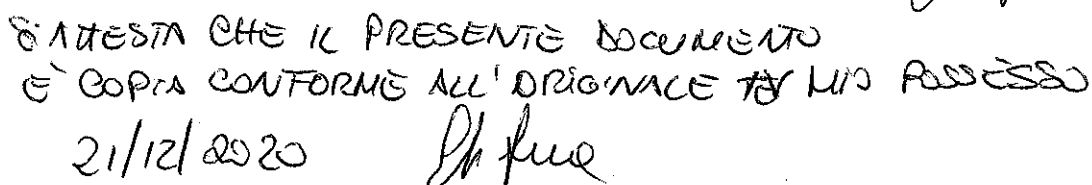 SI ATTESTA CHE IL PRESENTE DOCUMENTO
È COPIA CONFORME ALL'ORIGINALE MIO POSSESSO
21/12/2020